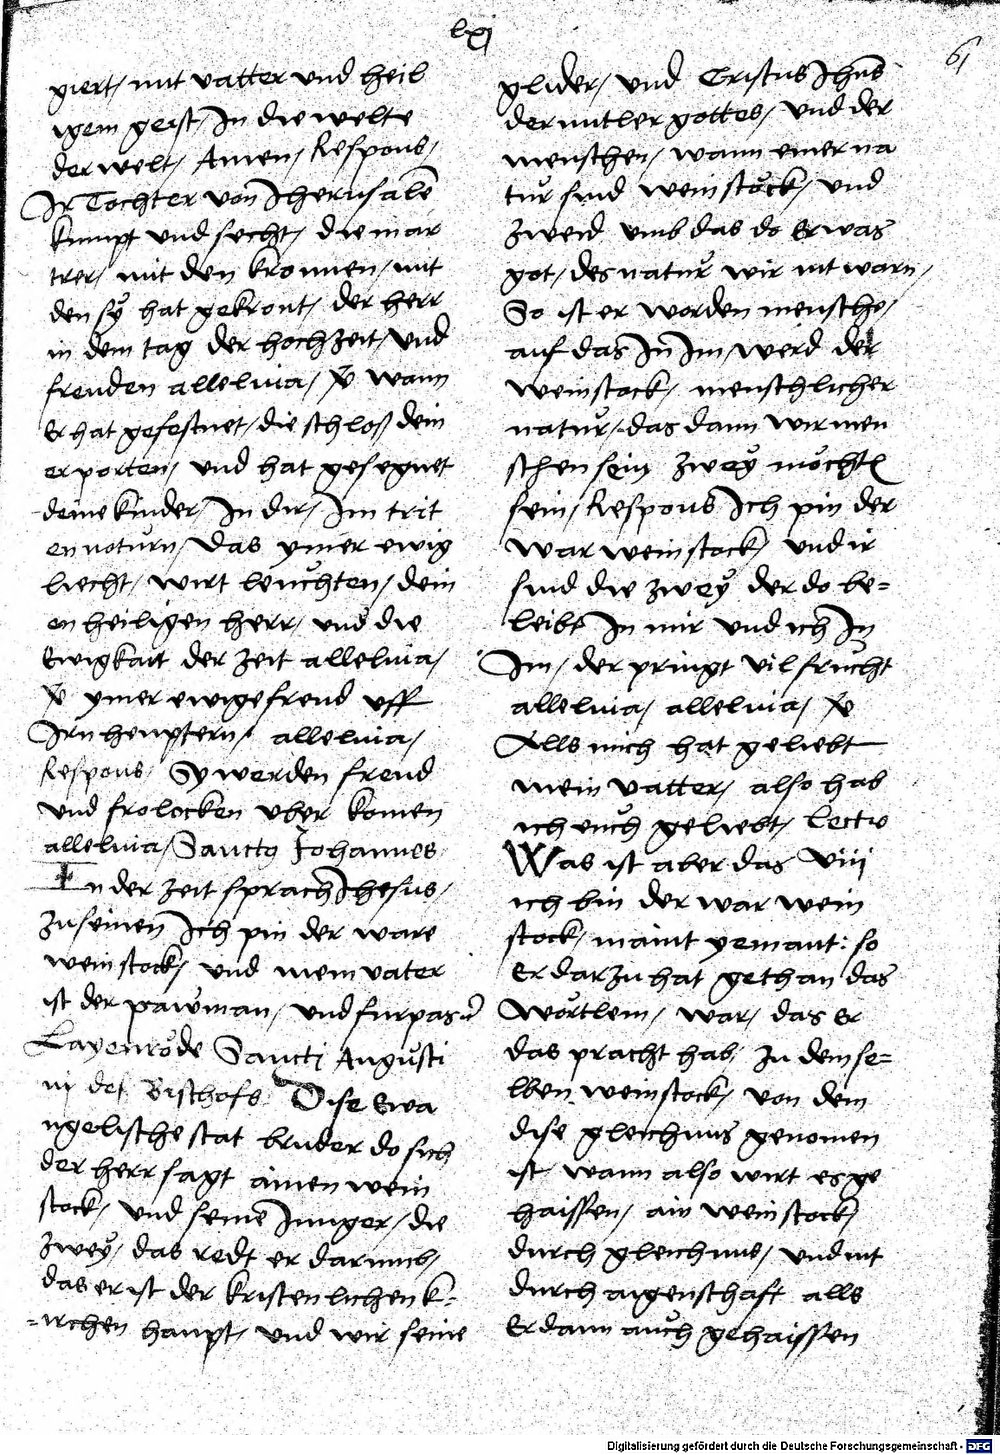 lxj
61
giert/ mit vatter und heil
igem geist/ In die welte
der welt/ Amen/ Respons/
Ir Tochter von Iherusalē
kumpt und secht/ die mar
trer/ mit den kronnen/ mit
den sÿ hat gekront/ der herr
in dem tag der hochzeit/ und
freuden alleluia/ wann
Er hat gefestnet/ die schloß dein
er porten/ und hat gesegnet
deine kinder/ In dir/ Im trit
en noturn/ Das ymer ewig
liecht/ wirt leuchten/ dein
en heiligen herr/ und die
Ewigkait der zeit alleluia/
ymer ewige freud uff
Irn heuptern/ alleluia/
Respons/ Sy werden freud
und frolocken uber komen
alleluia/ Sancto Johannes
In der zeit sprach Ihesus/
zu seinen Ich pin der ware
weinstock/ und mein vater
ist der paẅman/ und furpas
Layenrōde Sancti Augusti
ni des Bischofs Dise Ewa
ngelische stat bruder do sich
der herr sagt ainen wein
stock/ und seine Iunger/ die
zweÿ/ das redt er darumb/
das er ist der kristenlichen k-
-irchen haupt/ und wir seine
glider/ und Cristus Ihūs
der mitler gottes/ und der
menschen/ wann einer na
tur sind weinstöck/ und
zweid umb das do Er was
got/ des natur wir nit warn/
So ist er worden mensche/
auf das In Im/ werd der
weinstock/ menschlicher
natur/ das dann wir men
schen sein zweÿ möchtē
sein/ Respons Ich pin der
war weinstock/ und ir
sind die zweÿ der do be-
leibt In mir und ich In
Im/ der pringt vil frucht
alleluia/ alleluia/
Alls mich hat geliebt
mein vatter/ also hab
ich euch geliebt/ Lectio
Was ist aber das viij
ich bin der war wein
stock/ maint yemant: so
Er darzu hat gethan das
wörtlein/ war/ das Er
das pracht hab/ zu dem se-
lben weinstock/ von dem
dise gleichnus genomen
ist/ wann also wirt es ge
haissen/ ain weinstock/
durch gleichnus/ und nit
durch aigenschaft alls
Er dann auch gehaissen
Digitalisierung gefördert durch die Deutsche Forschungsgemeinschaft - DFG